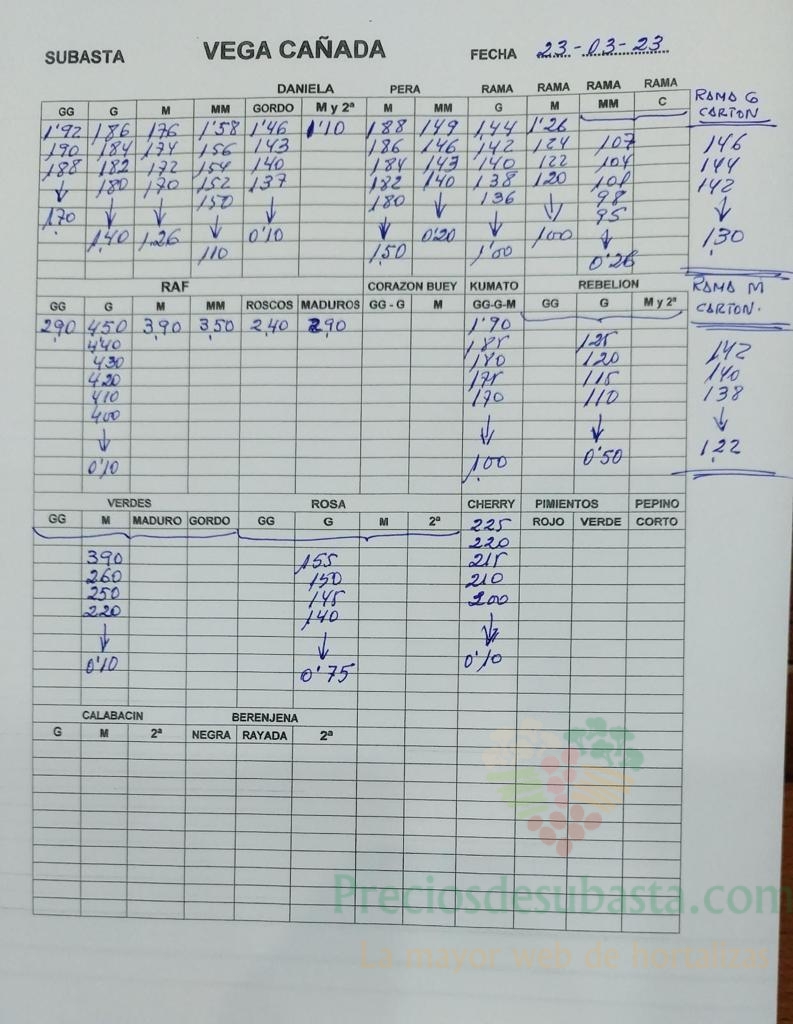 SUBASTA VEGA CAÑADA FECHA 23-03-23
DANIELA PERA RAMA RAMA RAMA RAMA RAMA G
GG G M MM GORDO M y 2ª M MM G M MM C CARTON
1'92 186 176 1'58 1'46 1'10 188 149 144 1'26
190 184 174 156 143 186 146 142 124 107 146
188 182 172 154 140 184 143 140 122 104 144
↓ 180 170 152 137 182 140 138 120 101 142
170 ↓ ↓ 150 ↓ 180 ↓ 136 ↓ 98 ↓
↓ ↓ ↓ 95
1,40 1,26 0'10 ↓ 0'20 ↓ 1,00 ↓ 1,30
110 1,50 1'00 0'26
RAF CORAZON BUEY KUMATO REBELION RAMA M
GG G M MM ROSCOS MADUROS GG - G M GG-G-M GG G M y 2ª CARTON.
2,90 450 3,90 3,50 2,40 2,90 1'90
440 185 125 142
430 180 120 140
420 175 115 138
410 170 110 ↓
400
↓ ↓ ↓ 1,22
0'10 1,00 0'50
VERDES ROSA CHERRY PIMIENTOS PEPINO
GG M MADURO GORDO GG G M 2ª 225 ROJO VERDE CORTO
220
390 155 215
260 150 210
250 145 200
220 140
↓ ↓ ↓
0'10 0'75 0'10
CALABACIN BERENJENA
G M 2ª NEGRA RAYADA 2ª
Preciosdesubasta.com
La mayor web de hortalizas